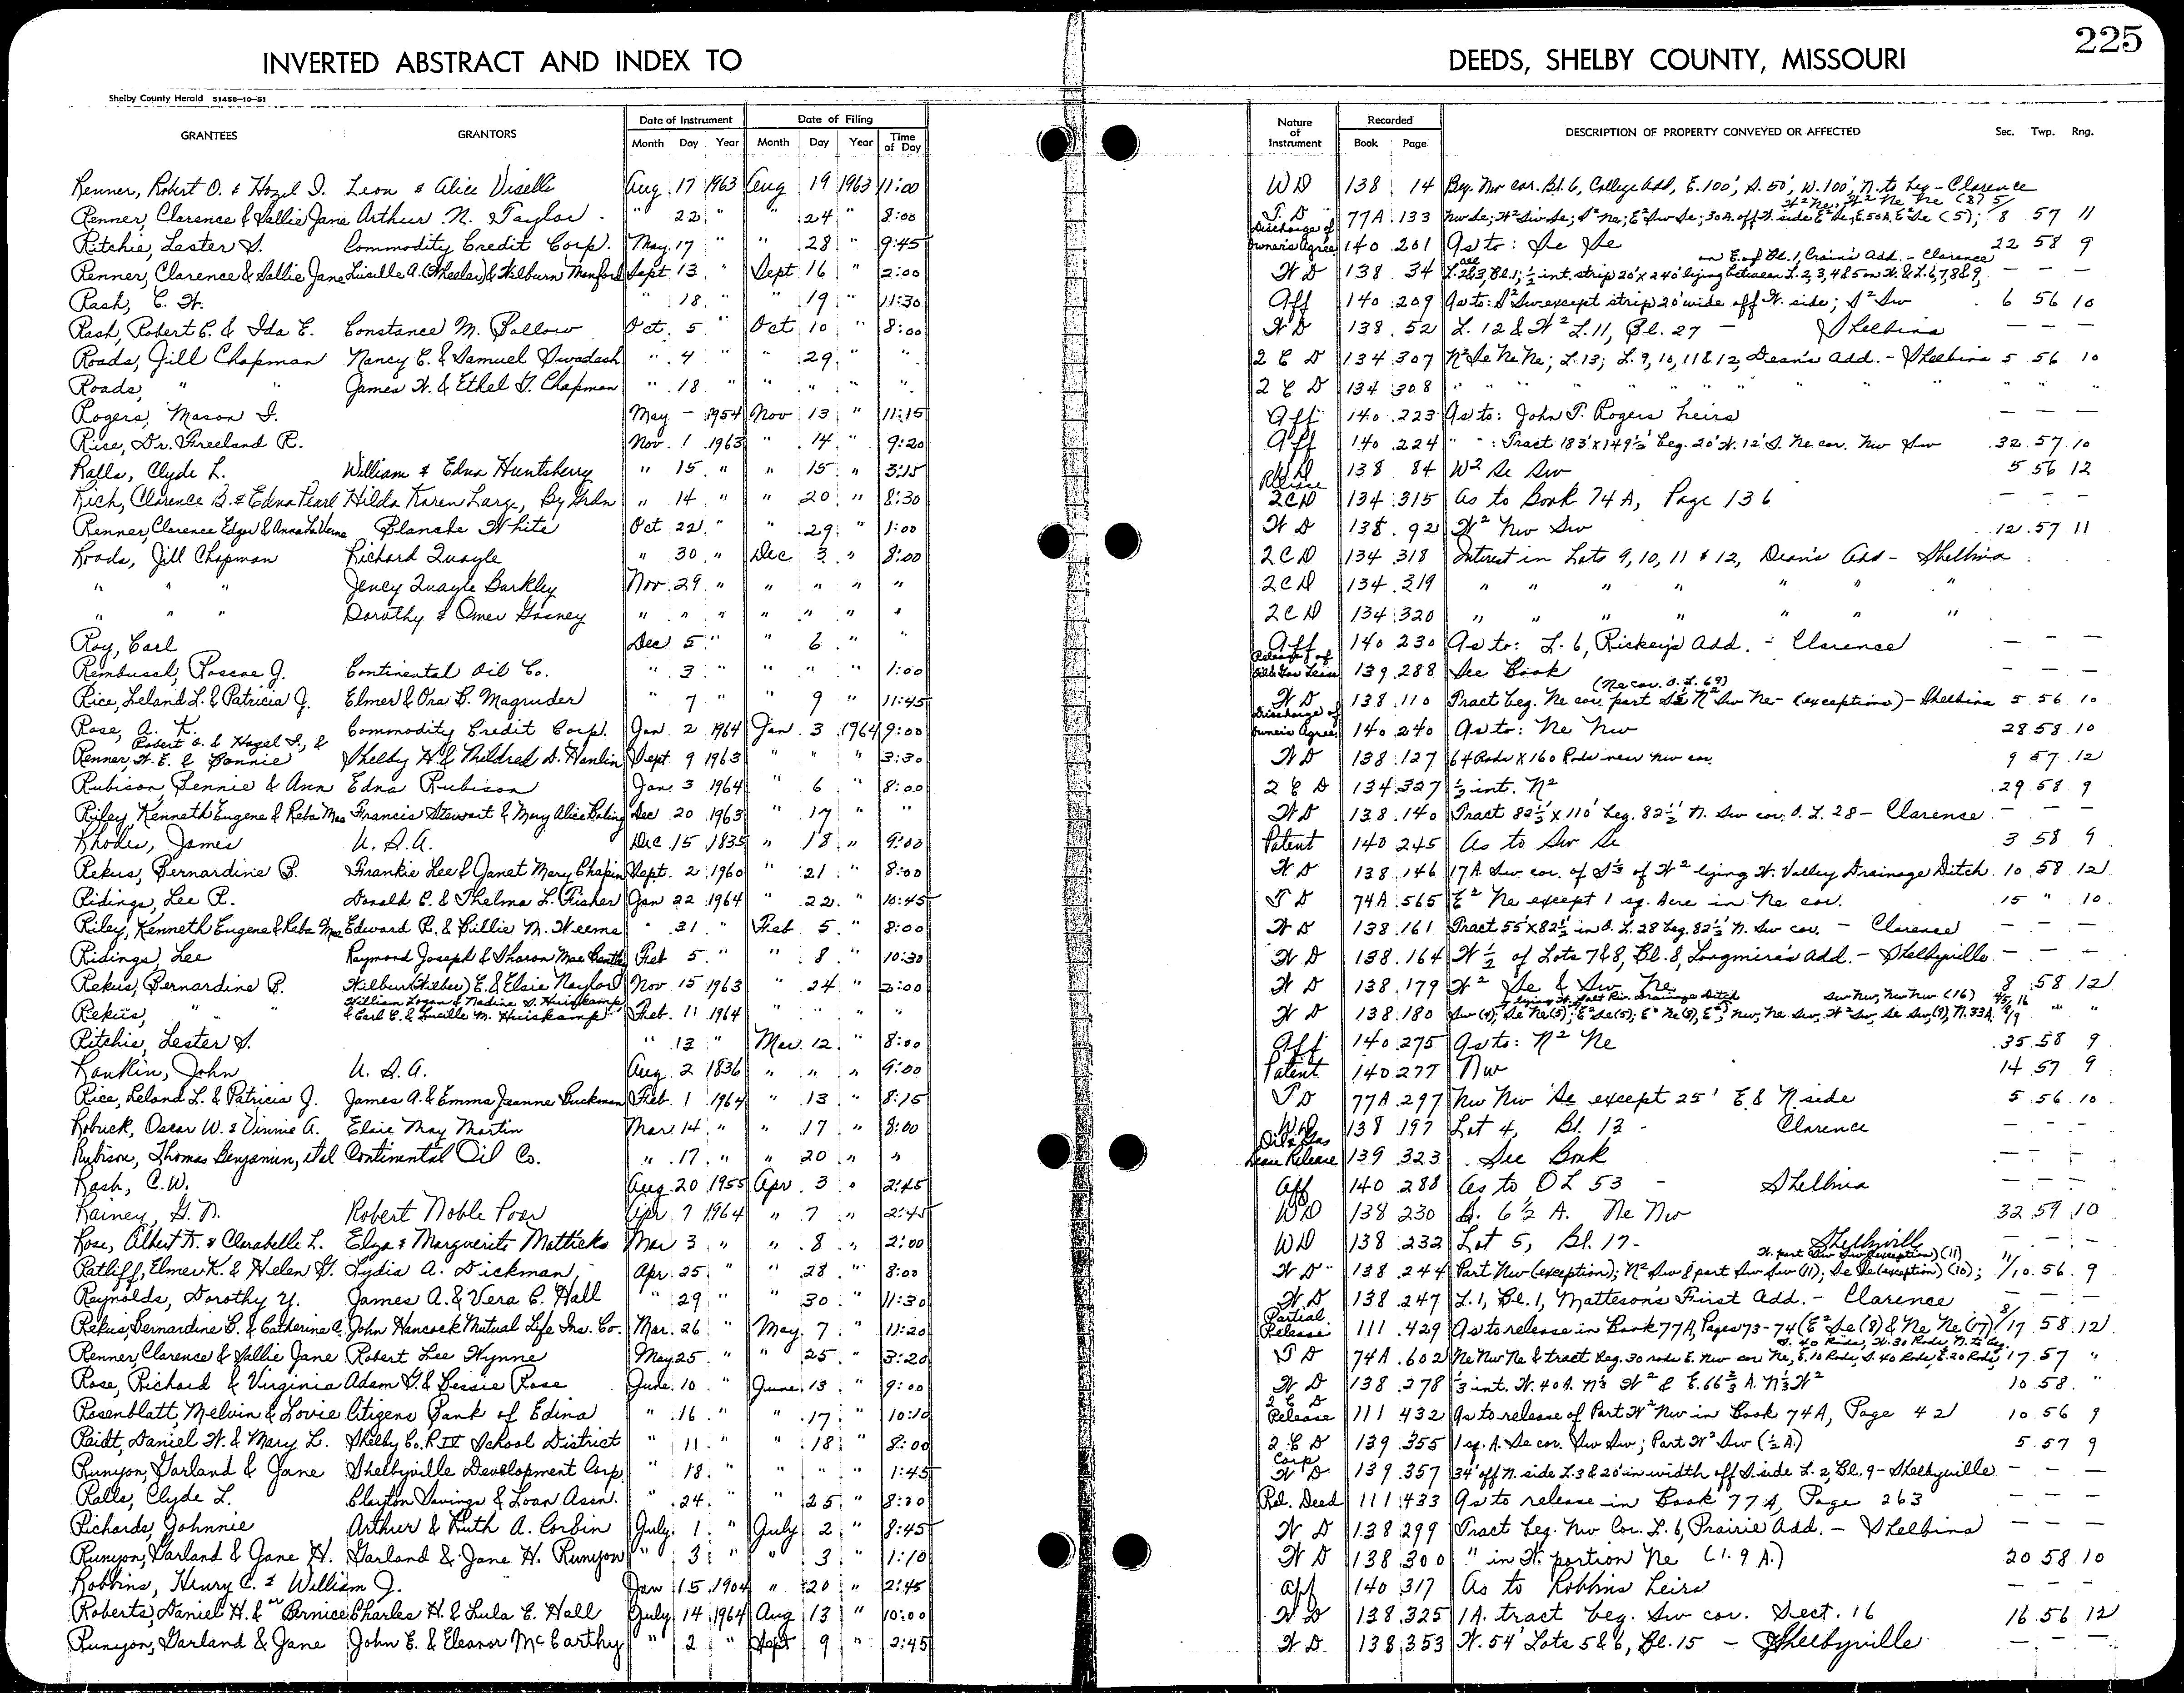 225
INVERTED ABSTRACT AND INDEX TO DEEDS, SHELBY COUNTY, MISSOURI
Shelby County Herald 51458-10-51
GRANTEES GRANTORS Date of Instrument Date of Filing Nature of Instrument Recorded DESCRIPTION OF PROPERTY CONVEYED OR AFFECTED Sec. Twp. Rng.
Month Day Year Month Day Year Time of Day Book Page
Renner, Robert O. & Hazel I. Leon & Alice Viselli Aug 17 1963 Aug 19 1963 11:00 WD 138 14 Beg. Nw cor. Bl. 6, College Add, E. 100', S. 50', W. 100', N. to beg - Clarence
Renner, Clarence & Sallie Jane Arthur N. & Taylor " 22 " " 24 " 8:00 T D 77A 133 Nw Se; W² Sw Se; S² Ne; E² Sw Se; 30A. off W. side E² Se, E. 50A. E² Se (5); 8 57 11
Ritchie, Lester S. Commodity Credit Corp. May 17 " " 28 " 9:45 Discharge of Owner's Agree 140 201 As to: Se Se 22 58 9
Renner, Clarence & Sallie Jane Lucille A. (Wheeler) & Wilburn Menford Sept 13 " Sept 16 " 2:00 W D 138 34 L. 2&3, Bl. 1; ½ int. strip 20' x 240' lying between L. 2, 3, 4 & 5 on W. & L. 6, 7, 8 & 9, on E. of Bl. 1, Crain's Add. - Clarence — — —
Rash, C. W. " 18 " " 19 " 11:30 Aff 140 209 As to: S² Sw except strip 20' wide off W. side; S² Sw 6 56 10
Rash, Robert E. & Ida E. Constance M. Ballow Oct. 5 " Oct 10 " 8:00 W D 138 52 L. 12 & W² L. 11, Bl. 27 - Shelbina — — —
Roads, Jill Chapman Nancy C. & Samuel Swadash " 4 " " 29 " " 2 C D 134 307 N² Se Ne Ne; L. 13; L. 9, 10, 11 & 12, Dean's Add. - Shelbina 5 56 10
Roads, " " James W. & Ethel T. Chapman " 18 " " " " " 2 C D 134 308 " " " " " " " " " " " "
Rogers, Mason I. May - 1954 Nov 13 " 11:15 Aff 140 223 As to: John T. Rogers heirs — — —
Rice, Dr. Freeland R. Nov. 1 1963 " 14 " 9:20 Aff 140 224 " " : Tract 183' x 149½' beg. 20' W. 12' S. Ne cor. Nw Sw 32 57 10
Ralls, Clyde L. William & Edna Huntsberry " 15 " " 15 " 3:15 WD 138 84 W² Se Sw 5 56 12
Rich, Clarence B. & Edna Pearl Hilda Karen Large, By Grdn " 14 " " 20 " 8:30 Release 2CD 134 315 As to Book 74A, Page 136 - - -
Renner, Clarence Edgar & Anna LaVerne Blanche White Oct 22 " " 29 " 1:00 W D 138 92 W² Nw Sw 12 57 11
Roads, Jill Chapman Richard Quayle " 30 " Dec 3 " 8:00 2CD 134 318 Interest in Lots 9, 10, 11 & 12, Dean's Add - Shelbina
" " " Jency Quayle Barkley Nov. 29 " " " " " 2CD 134 319 " " " " " " "
" " " Dorothy & Omer Gosney " " " " " " " 2CD 134 320 " " " " " " "
Roy, Carl Dec 5 " " 6 " " Aff 140 230 As to: L. 6, Rickey's Add. - Clarence — — —
Rembusch, Roscoe J. Continental Oil Co. " 3 " " " " 1:00 Release of Oil & Gas Lease 139 288 See Book - - -
Rice, Leland L. & Patricia J. Elmer & Ora B. Magruder " 7 " " 9 " 11:45 W D 138 110 Tract beg. Ne cor. part (Ne cor. O. L. 69) N² Sw Ne - (exceptions) - Shelbina 5 56 10
Rose, A. K. Commodity Credit Corp. Jan. 2 1964 Jan. 3 1964 9:00 Discharge of Owner's Agree 140 240 As to: Ne Nw 28 58 10
Renner, Robert O. & Hazel I., & W. E. & Bonnie Shelby H. & Mildred D. Hamlin Sept. 9 1963 " " " 3:30 W D 138 127 64 Rods x 160 Rods near Nw cor. 9 57 12
Rubison Bennie & Ann Edna Rubison Jan 3 1964 " 6 " 8:00 2 C D 134 327 ½ int. N² 29 58 9
Riley, Kenneth Eugene & Reba Mae Francis Stewart & Mary Alice Dec 20 1963 " 17 " " WD 138 140 Tract 82½' x 110' beg. 82½' N. Sw cor. O. L. 28 - Clarence - - -
Rhodes, James U. S. A. Dec 15 1835 " 18 " 9:00 Patent 140 245 As to Sw Se 3 58 9
Rekus, Bernardine B. Frankie Lee & Janet Mary Chapin Sept. 2 1960 " 21 " 8:00 W D 138 146 17A. Sw cor. of S⅓ of W² lying W. Valley Drainage Ditch 10 58 12
Ridings, Lee R. Donald C. & Thelma L. Fisher Jan 22 1964 " 22 " 10:45 T D 74A 565 E² Ne except 1 sq. Acre in Ne cor. 15 " 10
Riley, Kenneth Eugene & Reba Mae Edward R. & Billie M. Weems " 31 " Feb. 5 " 8:00 W D 138 161 Tract 55' x 82½' in O. L. 28 beg. 82½' N. Sw cor. - Clarence — — —
Ridings, Lee Raymond Joseph & Sharon Mae Feb. 5 " " 8 " 10:30 W D 138 164 W ½ of Lots 7 & 8, Bl. 8, Longmire's Add. - Shelbyville - - -
Rekus, Bernardine B. Wilbur (Wilber) E. & Elsie Naylor Nov. 15 1963 " 24 " 2:00 W D 138 179 W² Se & Sw Ne 8 58 12
Rekus, " " William Logan & Nadine S. Huiskamp & Carl C. & Lucille M. Huiskamp Feb. 11 1964 " " " " W D 138 180
Ritchie, Lester S. " 13 " Mar. 12 " 8:00 Aff 140 275 As to: N² Ne 35 58 9
Rankin, John U. S. A. Aug 2 1836 " " " 9:00 Patent 140 277 Nw 14 57 9
Rice, Leland L. & Patricia J. James A. & Emma Jeanne Buckman Feb. 1 1964 " 13 " 8:15 T D 77A 297 Nw Nw Se except 25' E. & N. side 5 56 10
Robuck, Oscar W. & Vinnie A. Elsie May Martin Mar. 14 " " 17 " 8:00 WD 138 197 Lot 4, Bl. 13 - Clarence - - -
Rubison, Thomas Benjamin, etal Continental Oil Co. " 17 " " 20 " " Oil & Gas Lease Release 139 323 See Book - - -
Rash, C. W. Aug. 20 1955 Apr. 3 " 2:45 Aff 140 288 As to OL 53 - Shelbina - - -
Rainey, G. N. Robert Noble Poor Apr 7 1964 " 7 " 2:45 WD 138 230 S. 6½ A. Ne Nw 32 59 10
Rose, Albert K. & Clarabelle L. Elza & Marguerite Matticks Mar 3 " " 8 " 2:00 WD 138 232 Lot 5, Bl. 17 - Shelbyville - - -
Ratliff, Elmer K. & Helen G. Lydia A. Dickman Apr 25 " " 28 " 8:00 W D 138 244 Part Nw (exception); N² Sw & part Sw Sw (11); Se Se (exception) (10); W. part Sw Sw (exception) (11) 11/10 56 9
Reynolds, Dorothy Y. James A. & Vera C. Hall " 29 " " 30 " 11:30 W D 138 247 L. 1, Bl. 1, Matteson's First Add. - Clarence — — —
Rekus, Bernardine B. & Catherine A. John Hancock Mutual Life Ins. Co. Mar. 26 " May 7 " 11:20 Partial Release 111 429 As to release in Book 77A, Pages 73-74 (E² Se (8) & Ne Ne (17) 8/17 58 12
Renner, Clarence & Sallie Jane Robert Lee Wynne May 25 " " 25 " 3:20 T D 74A 602 Ne Nw Ne & tract beg. 30 rods E. Nw cor Ne, E. 10 Rods, S. 40 Rods, E. 20 Rods, S. 40 Rods, W. 30 Rods, N. to beg. 17 57 "
Rose, Richard & Virginia Adam G. & Bessie Rose June 10 " June 13 " 9:00 W D 138 278 ⅓ int. W. 40 A. N⅓ W² & E. 66⅔ A. N⅓ W² 10 58 "
Rosenblatt, Melvin & Lovie Citizens Bank of Edina " 16 " " 17 " 10:10 2 C D Release 111 432 As to release of Part W² Nw in Book 74A, Page 42 10 56 9
Raidt, Daniel W. & Mary L. Shelby Co. R IV School District " 11 " " 18 " 8:00 2 C D 139 355 1 sq. A. Se cor. Sw Sw; Part W² Sw (½ A.) 5 57 9
Runyon, Garland & Jane Shelbyville Development Corp. " 18 " " " " 1:45 Corp W D 139 357 34' off N. side L. 3 & 20' in width off S. side L. 2, Bl. 9 - Shelbyville - — —
Ralls, Clyde L. Clayton Savings & Loan Assn. " 24 " " 25 " 8:30 Rel. Deed 111 433 As to release in Book 77A, Page 263 — — —
Richards, Johnnie Arthur & Ruth A. Corbin July 1 " July 2 " 8:45 W D 138 299 Tract beg. Nw Cor. L. 6, Prairie Add. - Shelbina — — —
Runyon, Garland & Jane H. Garland & Jane H. Runyon " 3 " " 3 " 1:10 W D 138 300 " in W. portion Ne (1.9 A.) 20 58 10
Robbins, Henry C. & William J. Jan 15 1904 " 20 " 2:45 Aff 140 317 As to Robbins heirs - - -
Roberts, Daniel H. & Bernice Charles H. & Lula E. Hall July 14 1964 Aug 13 " 10:00 W D 138 325 1A. tract beg. Sw cor. Sect. 16 16 56 12
Runyon, Garland & Jane John E. & Eleanor McCarthy " 2 " Sept 9 " 2:45 W D 138 353 W. 54' Lots 5 & 6, Bl. 15 - Shelbyville — — —